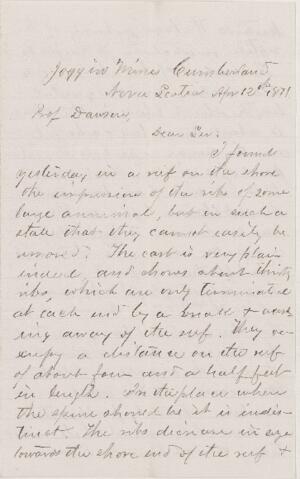 Joggin Mines Cumberland,
Nova Scotia Apr 12th 1871
Prof Dawson,
Dear Sir:
I found
yesterday in a reef on the shore
the impression of the ribs of some
large annimal, but in such a
state that they cannot easily be
removed. The cast is very plain
indeed, and shows about thirty
ribs, which are only terminated
at each end by a break &
ing away of the reef. They oc-
cupy a distance on the reef
of about four and a half feet
in length. In the place where
the spine should be it is indis-
tinct. The ribs decrease in size
towards the shore end of the reef &